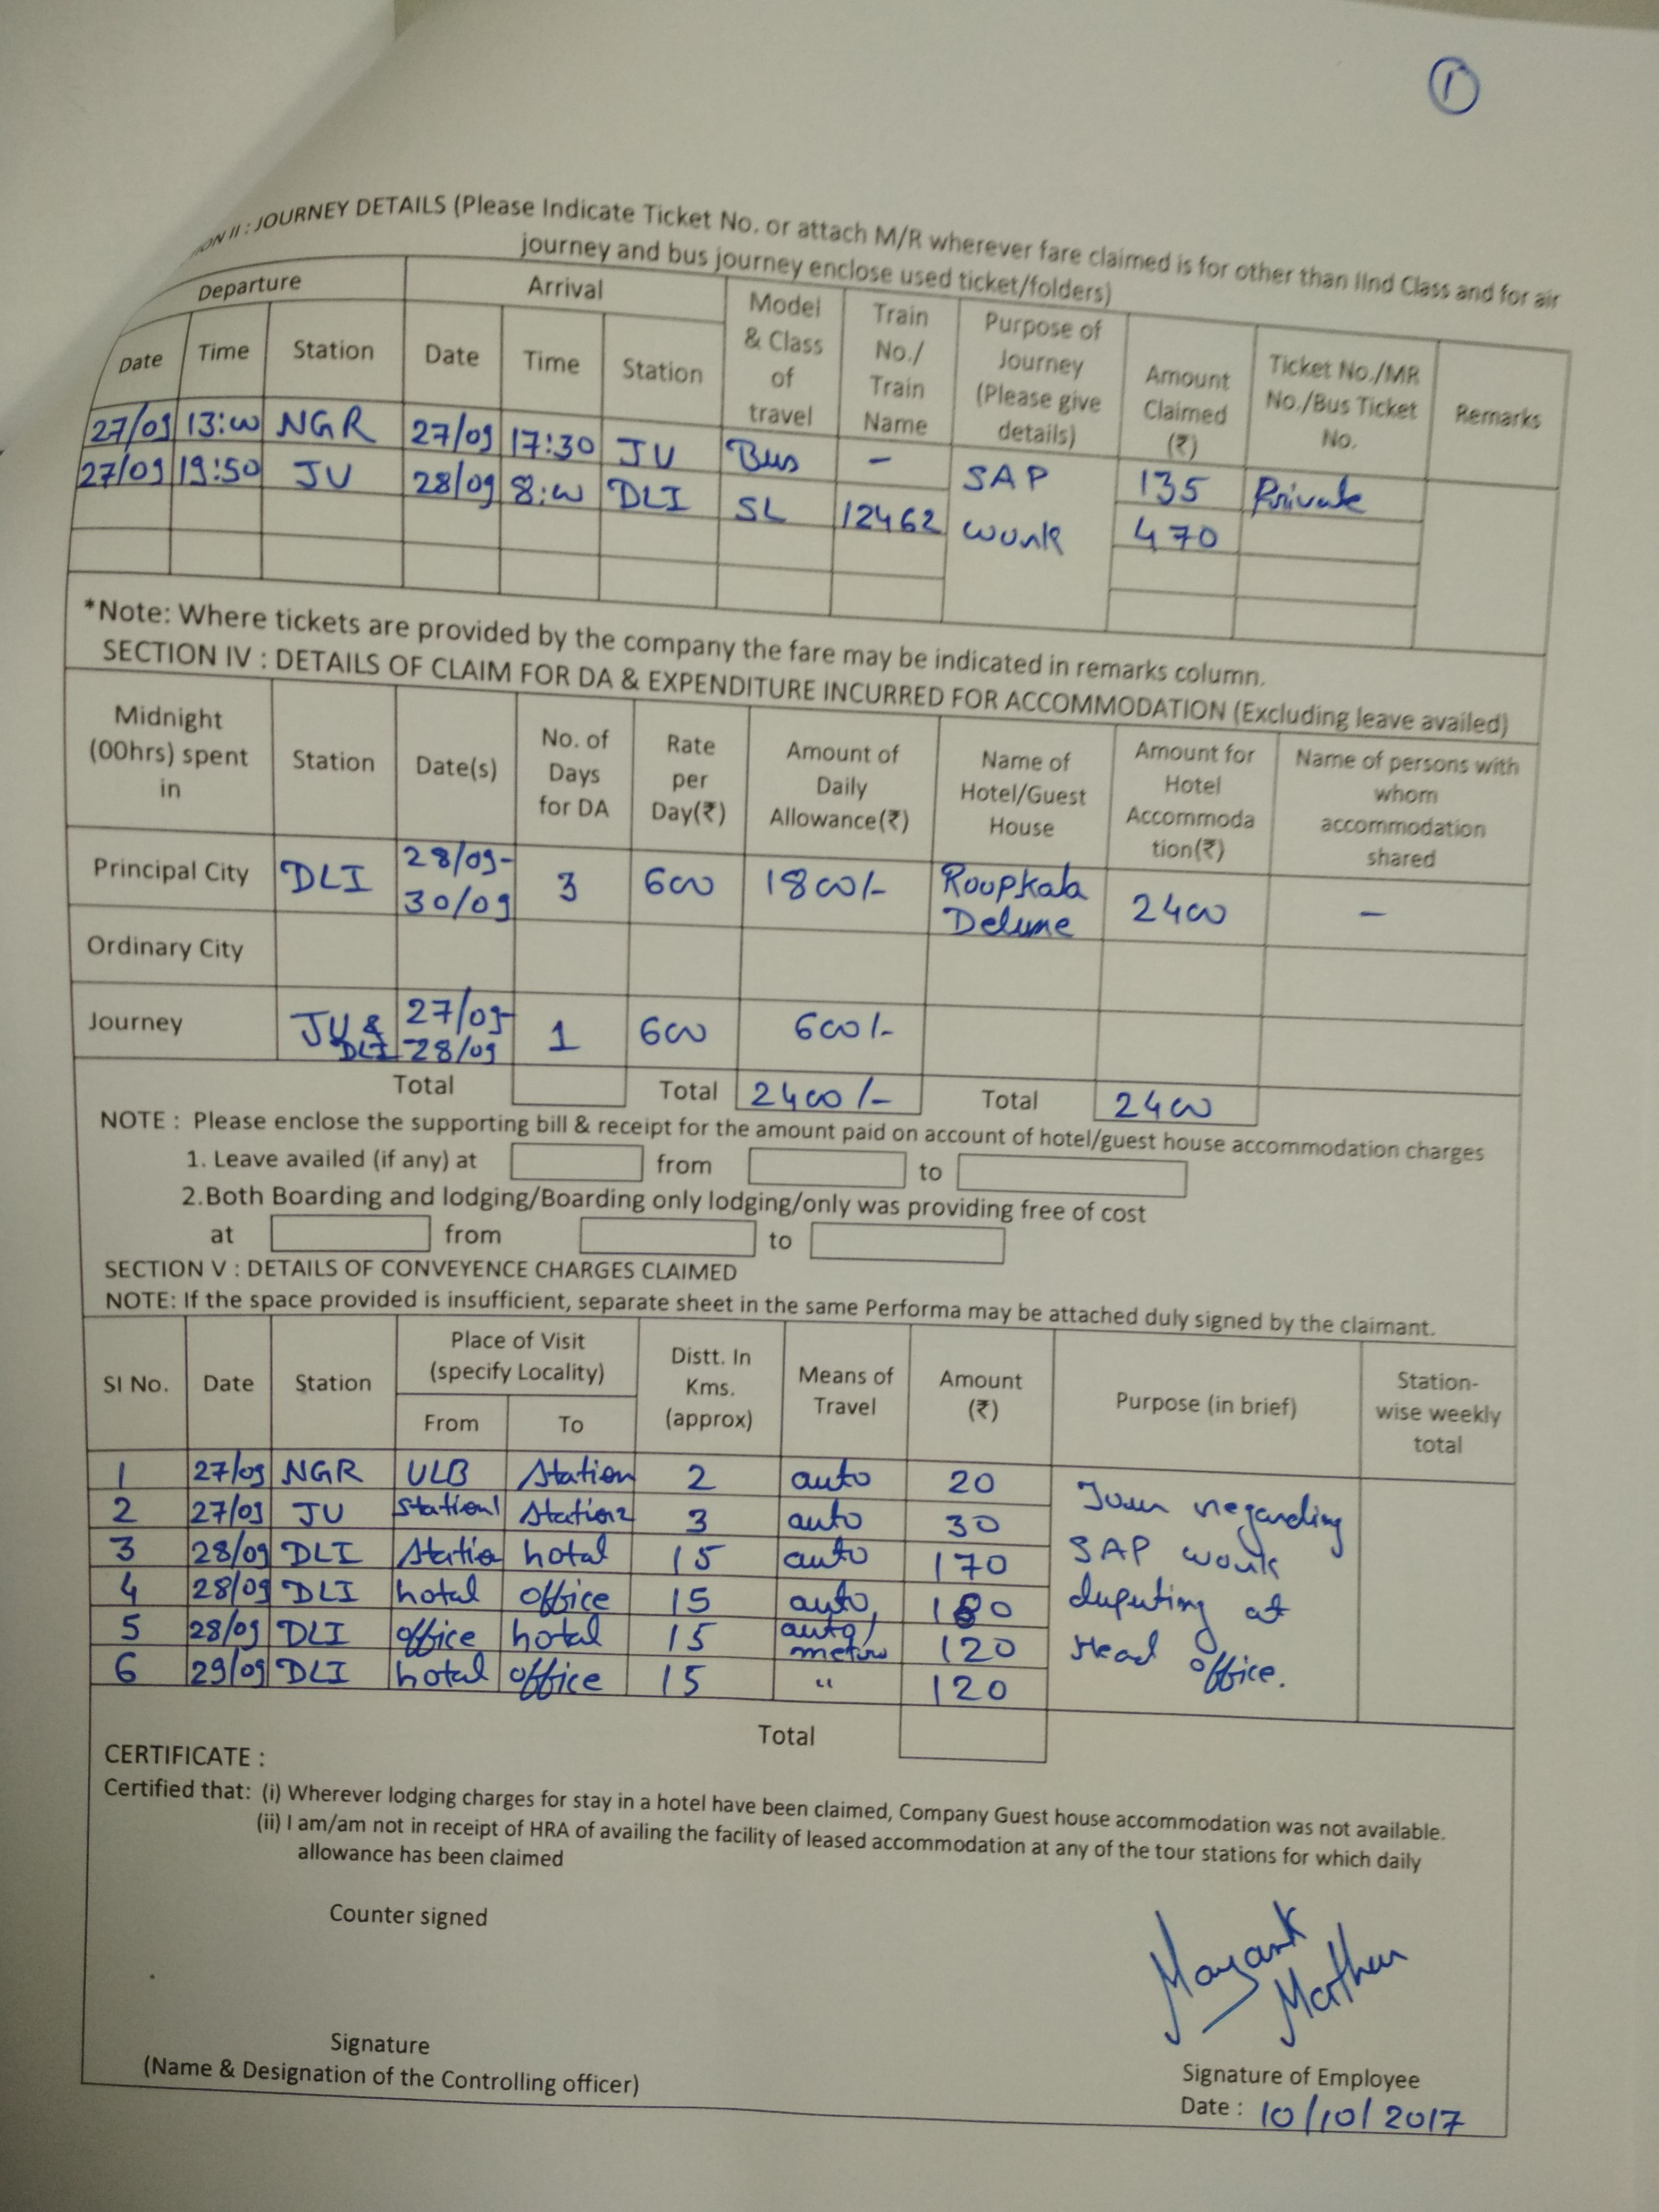 1
ON II : JOURNEY DETAILS (Please Indicate Ticket No. or attach M/R wherever fare claimed is for other than IInd Class and for air
journey and bus journey enclose used ticket/folders)
Departure Arrival Model & Class of travel Train No./ Train Name Purpose of Journey (Please give details) Amount Claimed (₹) Ticket No./MR No./Bus Ticket No. Remarks
Date Time Station Date Time Station
27/09 13:00 NGR 27/09 17:30 JU Bus - SAP 135 Private
27/09 19:50 JU 28/09 8:00 DLI SL 12462 work 470
*Note: Where tickets are provided by the company the fare may be indicated in remarks column.
SECTION IV : DETAILS OF CLAIM FOR DA & EXPENDITURE INCURRED FOR ACCOMMODATION (Excluding leave availed)
Midnight (00hrs) spent in Station Date(s) No. of Days for DA Rate per Day(₹) Amount of Daily Allowance(₹) Name of Hotel/Guest House Amount for Hotel Accommoda tion(₹) Name of persons with whom accommodation shared
Principal City DLI 28/09- 30/09 3 600 1800/- Roopkala Deluxe 2400 -
Ordinary City
Journey JU & DLI 27/09- 28/09 1 600 600/-
Total Total 2400/- Total 2400
NOTE : Please enclose the supporting bill & receipt for the amount paid on account of hotel/guest house accommodation charges
1. Leave availed (if any) at from to
2.Both Boarding and lodging/Boarding only lodging/only was providing free of cost
at from to
SECTION V : DETAILS OF CONVEYENCE CHARGES CLAIMED
NOTE: If the space provided is insufficient, separate sheet in the same Performa may be attached duly signed by the claimant.
SI No. Date Station Place of Visit (specify Locality) Distt. In Kms. (approx) Means of Travel Amount (₹) Purpose (in brief) Station- wise weekly total
From To
1 27/09 NGR ULB Station 2 auto 20 Tour regarding
2 27/09 JU Station1 Station2 3 auto 30
3 28/09 DLI Statio hotal 15 auto 170 SAP work
4 28/09 DLI hotal office 15 auto, 180 deputing at
5 28/09 DLI office hotal 15 auto/ metro 120 Head office.
6 29/09 DLI hotal office 15 " 120
Total
CERTIFICATE :
Certified that: (i) Wherever lodging charges for stay in a hotel have been claimed, Company Guest house accommodation was not available.
(ii) I am/am not in receipt of HRA of availing the facility of leased accommodation at any of the tour stations for which daily
allowance has been claimed
Counter signed
Mayank
Mathur
Signature
(Name & Designation of the Controlling officer)
Signature of Employee
Date : 10/10/2017